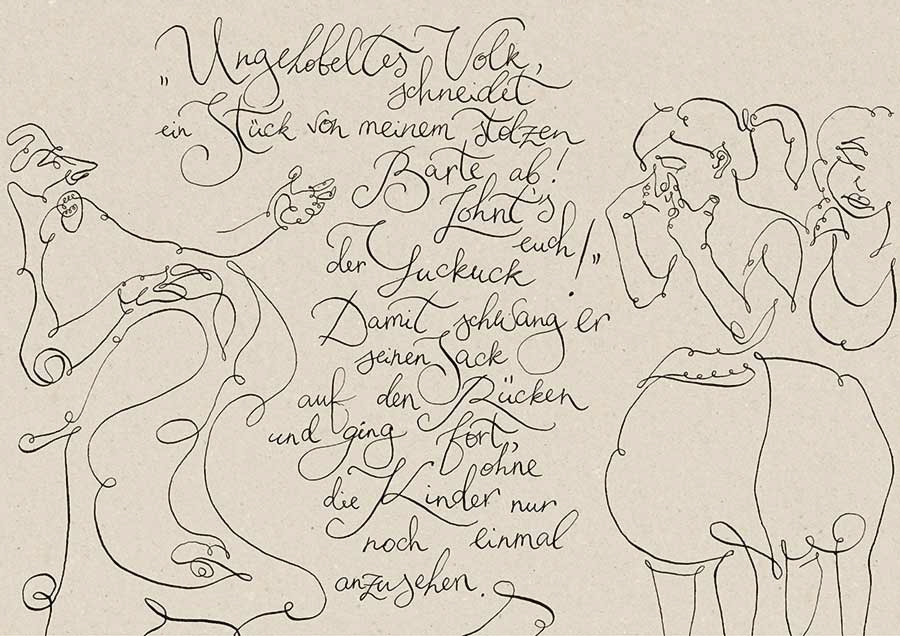 „Ungehobeltes Volk,
schneidet
ein Stück von meinem stolzen
Barte ab!
Lohnt's
euch
der Guckuck!“
Damit schwang er
seinen Sack
auf den Rücken
und ging fort,
ohne
die Kinder nur
noch einmal
anzusehen.